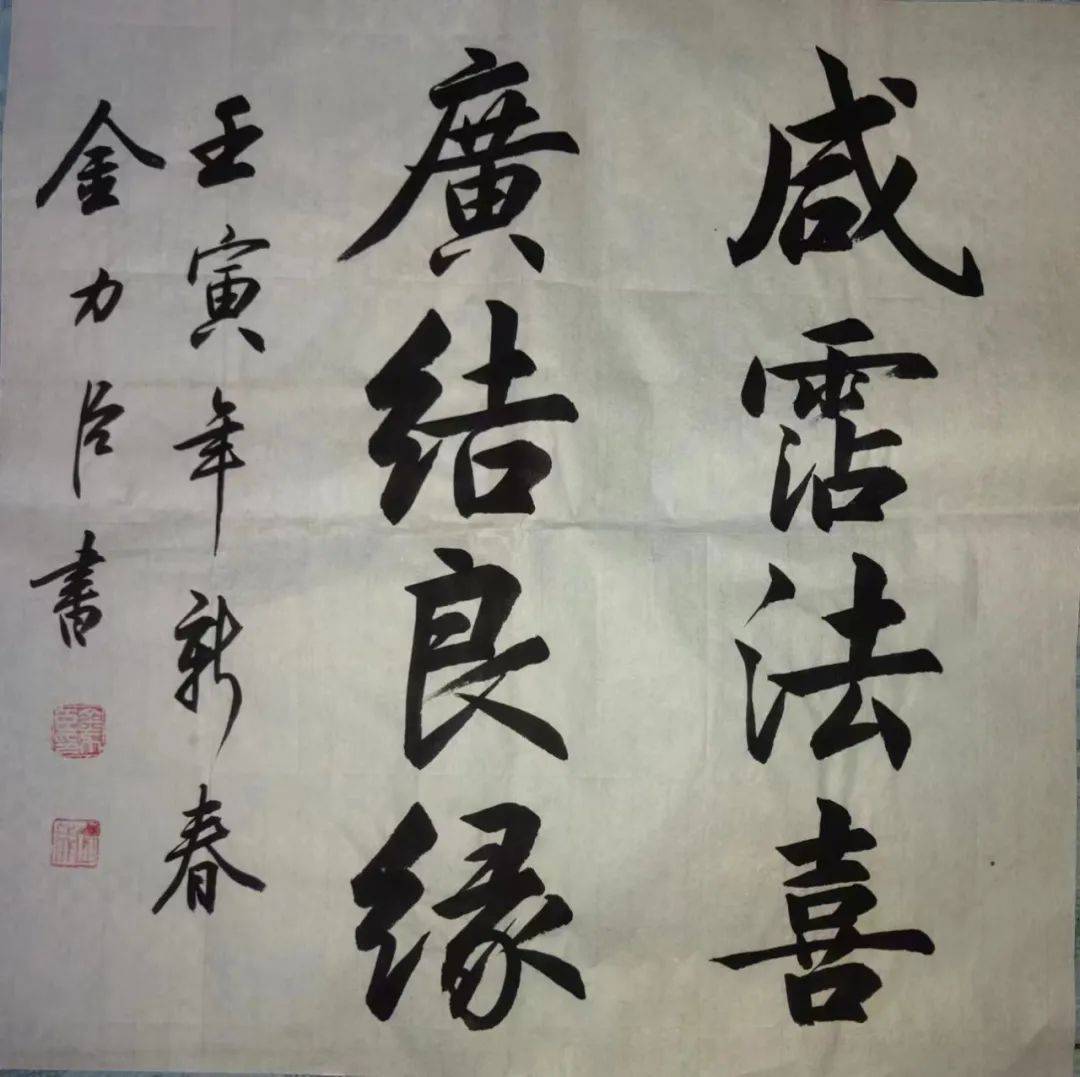 咸霑法喜
廣结良缘
壬寅年新春
金力 书